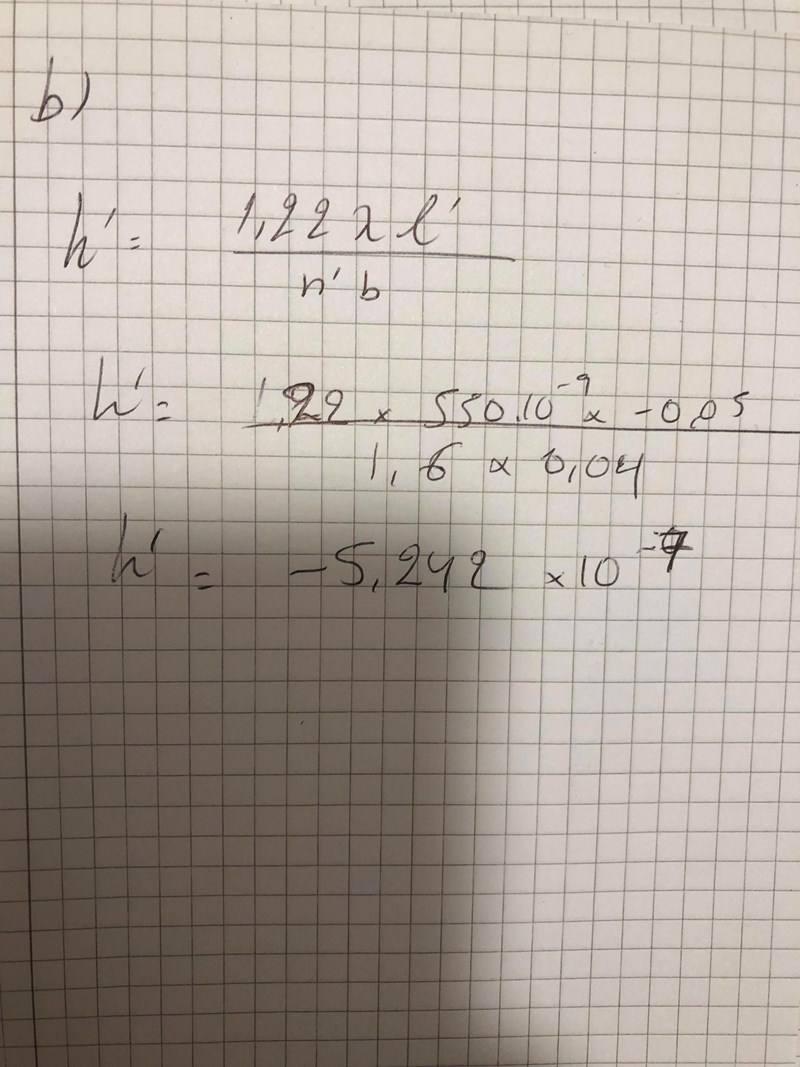 b)
h' = 1,22 λ l'
n' b
h' = 1,22 x 550.10⁻⁹ x -0,05
1,6 x 0,04
h' = -5,242 x10⁻⁷